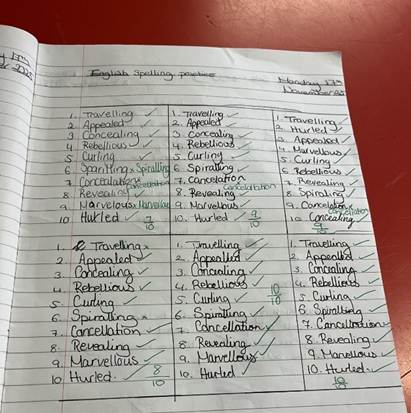 English Spelling practice
Monday 17th
November
1. Travelling
2. Appealed
3. Concealing
4. Rebellious
5. Curling
6. Spiralling
7.
8. Revealing
9. Marvelous Marvellous
10. Hurled
7/10
1. Travelling
2. Appealed
3. Concealing
4. Rebellious
5. Curling
6. Spiralling
7. Cancelation
8. Revealing
9. Marvellous
10. Hurled
9/10
1. Travelling
2. Hurled
3. Appealed
4. Marvellous
5. Curling
6. Rebellious
7. Revealing
8. Spiraling
9. Cancelation
10. Concealing
1. Travelling
2. Appealed
3. Concealing
4. Rebellious
5. Curling
6. Spiralling
7. Cancellation
8. Revealing
9. Marvellous
10. Hurled.
8/10
1. Travelling
2. Appealed
3. Concealing
4. Rebellious
5. Curling
6. Spiralling
7. Cancellation
8. Revealing
9. Marvellous
10. Hurled
10/10
1. Travelling
2. Appealed
3. Concealing
4. Rebellious
5. Curling
6. Spiralling
7. Cancellation
8. Revealing
9. Marvellous
10. Hurled.
10/10